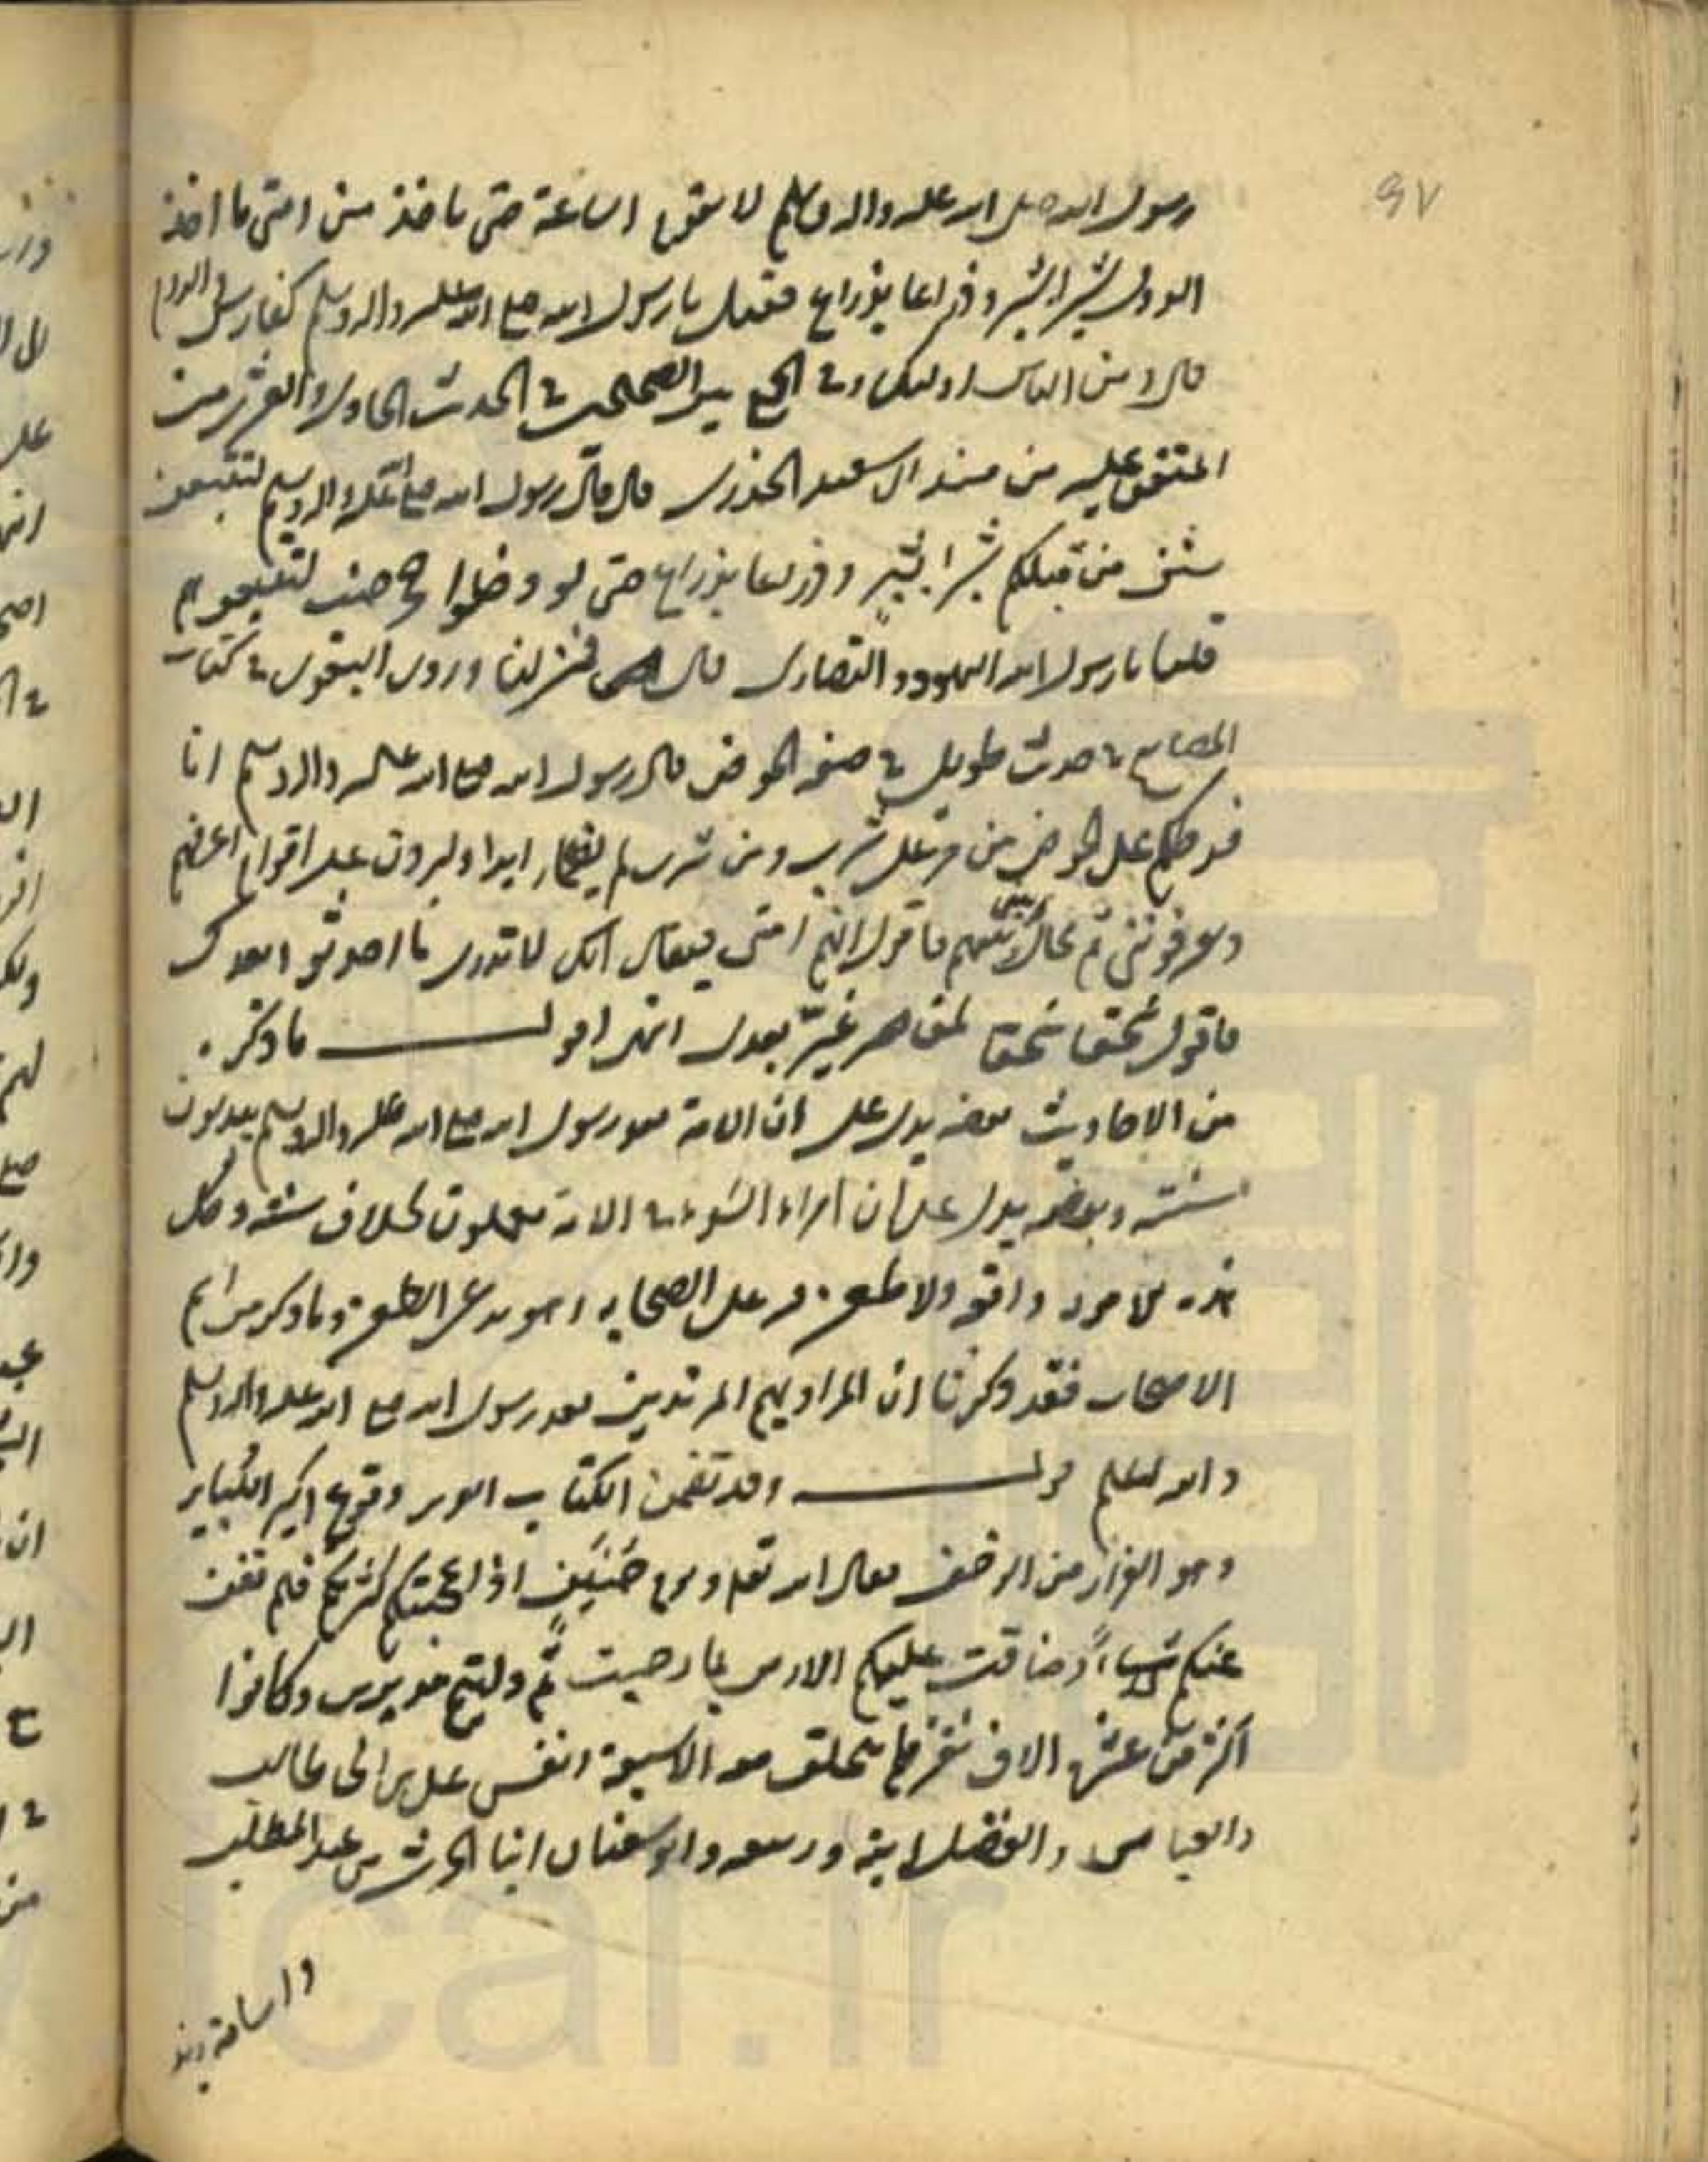 ۹۷
رسول الله صلى الله عليه واله وسلم لا تقوم الساعة حتى تاخذ من امتى ما اخذ
القرون شبرا بشبر وذراعا بذراع فقيل يا رسول الله صلى الله عليه واله وسلم كفارس والروم
قال ومن الناس اولئك وفى الجمع بين الصحيحين فى الحديث الحادى والعشرين من
المتفق عليه من مسند ابى سعيد الخدرى قال قال رسول الله صلى الله عليه واله وسلم لتتبعن
سنن من قبلكم شبرا بشبر وذراعا بذراع حتى لو دخلوا جحر ضب لتبعتموهم
قلنا يا رسول الله اليهود والنصارى قال فمن اذن وروى البغوى فى كتاب
المصابيح فى حديث طويل فى صفة الحوض قال رسول الله صلى الله عليه واله وسلم انا
فرطكم على الحوض من مر على شرب ومن شرب لم يظما ابدا وليردن على اقوام اعرفهم
ويعرفوننى ثم يحال بينى وبينهم فاقول انهم امتى فيقال انك لا تدرى ما احدثوا بعدك
فاقول سحقا سحقا لمن غير بعدى انتهى اقول ما ذكر
من الاحاديث بعضه يدل على ان الامة بعد رسول الله صلى الله عليه واله وسلم يبدلون
سنته وبعضه يدل على ان امراء السوء فى الامة يعملون بخلاف سنته وكل
هذه الامور واقعة ولا طعن فيه على الصحابة وهو يدعى الطعن وما ذكر من اسم
الاصحاب فقد ذكرنا ان المراد بهم المرتدين بعد رسول الله صلى الله عليه واله وسلم
والله اعلم قوله وقد تضمن الكتاب العزيز وقوع اكبر الكباير
وهو الفرار من الزحف فقال الله تعالى ويوم حنين اذ اعجبتكم كثرتكم فلم تغن
عنكم شيئا وضاقت عليكم الارض بما رحبت ثم وليتم مدبرين وكانوا
اكثر من عشرة الاف نفر فلم يتخلف معه الا سبعة انفس على بن ابى طالب
والعباس والفضل ابنه وربيعة وابو سفيان ابنا الحرث بن عبد المطلب
واسامة بن